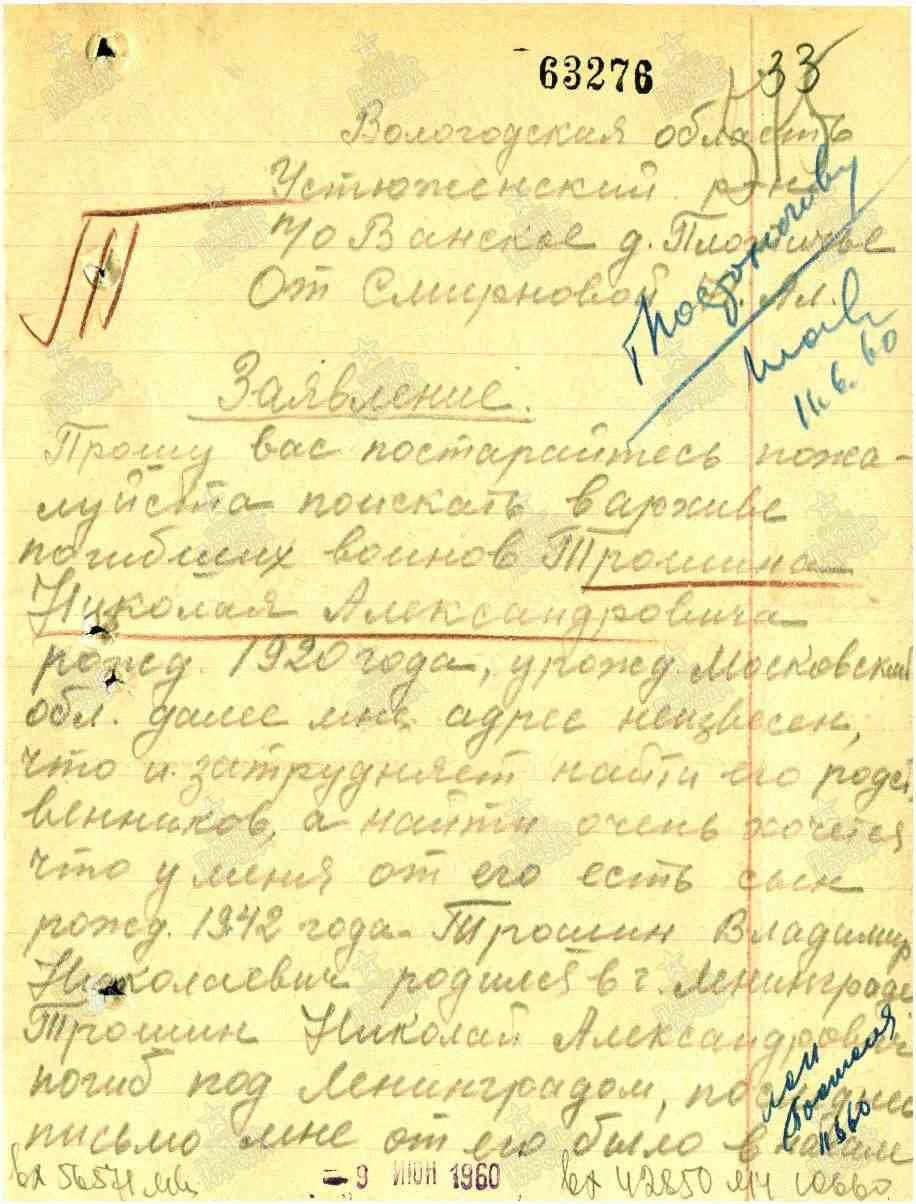 63276
33
Вологодская область
Устюженский р-н
п/о Ванское д.
От Смирновой Ал.
11.6.60
Заявление.
Прошу вас постарайтесь пожа-
луйста поискать в архиве
погибших воинов Трошина
Николая Александровича
рожд. 1920 года, урожд. Московской
обл. далее мне адрес неизвесен,
что и затрудняет найти его родст
венников, а найти очень хочется
что у меня от его есть сын
рожд. 1942 года Трошин Владимир
Николаевич родился в г. Ленинграде
Трошин Николай Александрович
погиб под Ленинградом, последнее
письмо мне от его было в начале
- 9 ИЮН 1960